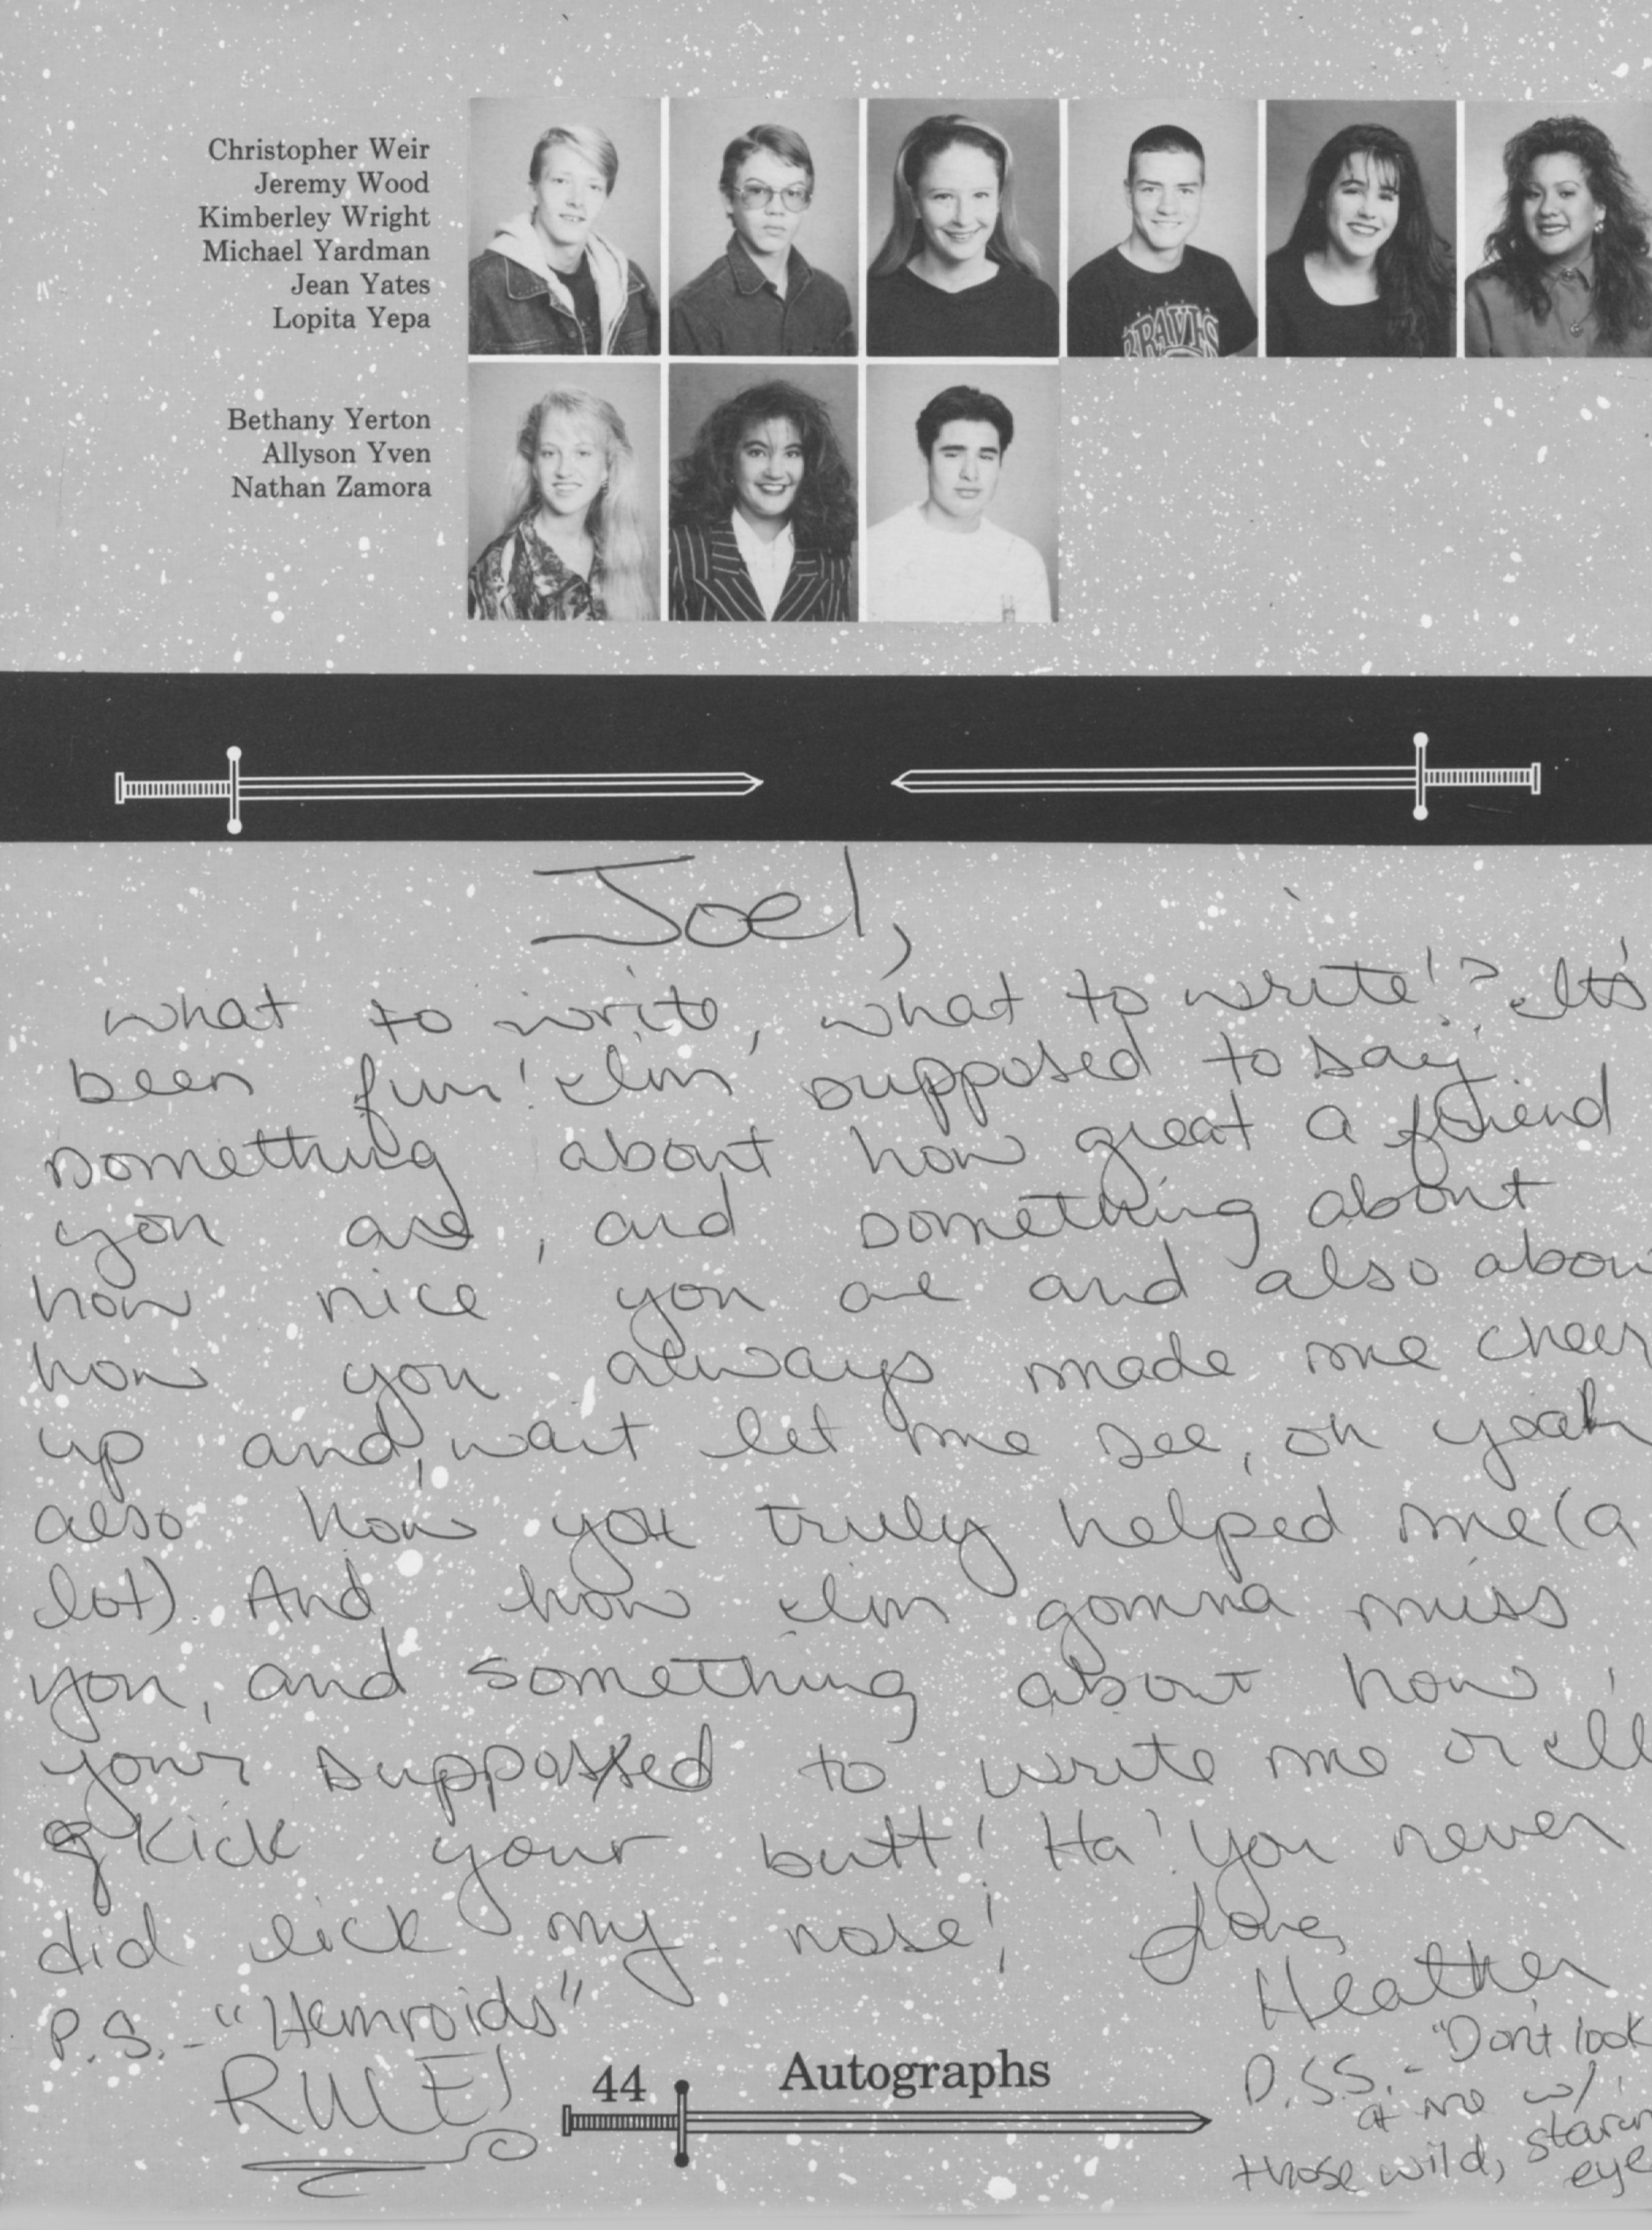 Christopher Weir
Jeremy Wood
Kimberley Wright
Michael Yardman
Jean Yates
Lopita Yepa
BRAVES
Bethany Yerton
Allyson Yven
Nathan Zamora
Joel,
what to write, what to write!? It's
been fun! I'm supposed to say
something about how great a friend
you are, and something about
how nice you are and also abou
how you always made me cheer
up and, wait let me see, oh yeah
also how you truly helped me (a
lot). And how I'm gonna miss
you, and something about how
your suppossed to write me or I'll
kick your butt! Ha! You never
did lick my nose! Love,
Heather
P.S. - "Hemroids"
RULE!
P.S.S. - "Don't look
at me w/
those wild, starin
eye
44 Autographs